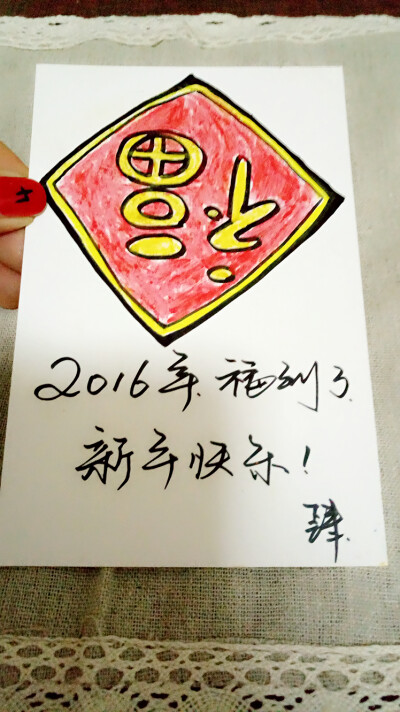 福
2016年.福到了.
新年快乐!
肆.